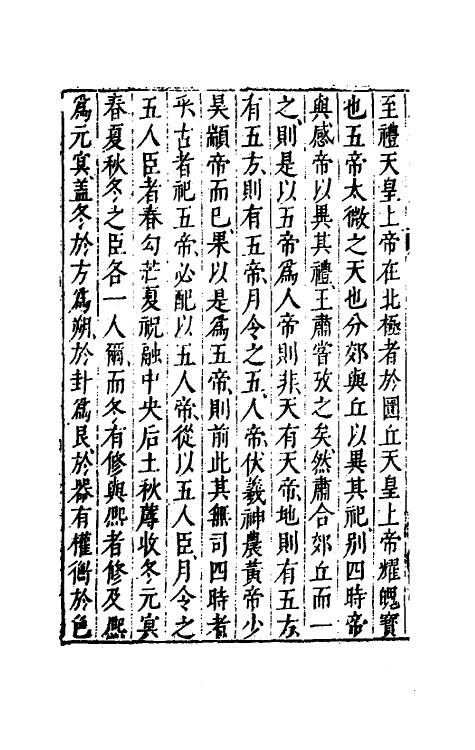 至禮天皇上帝在北極者於圜丘天皇上帝耀魄寶
也五帝太微之天也分郊與丘以異其祀别四時帝
與感帝以異其禮王肅嘗攷之矣然肅合郊丘而一
之則是以五帝為人帝則非天有天帝地則有五方
有五方則有五帝月令之五人帝伏羲神農黃帝少
昊顓帝而已果以是為五帝則前此其無司四時者
乎古者祀五帝必配以五人帝從以五人臣月令之
五人臣者春勾芒夏祝融中央后土秋蓐收冬元冥
春夏秋冬之臣各一人爾而冬有修與熙者修及熙
為元冥蓋冬於方為朔於卦為艮於器有權衡於色